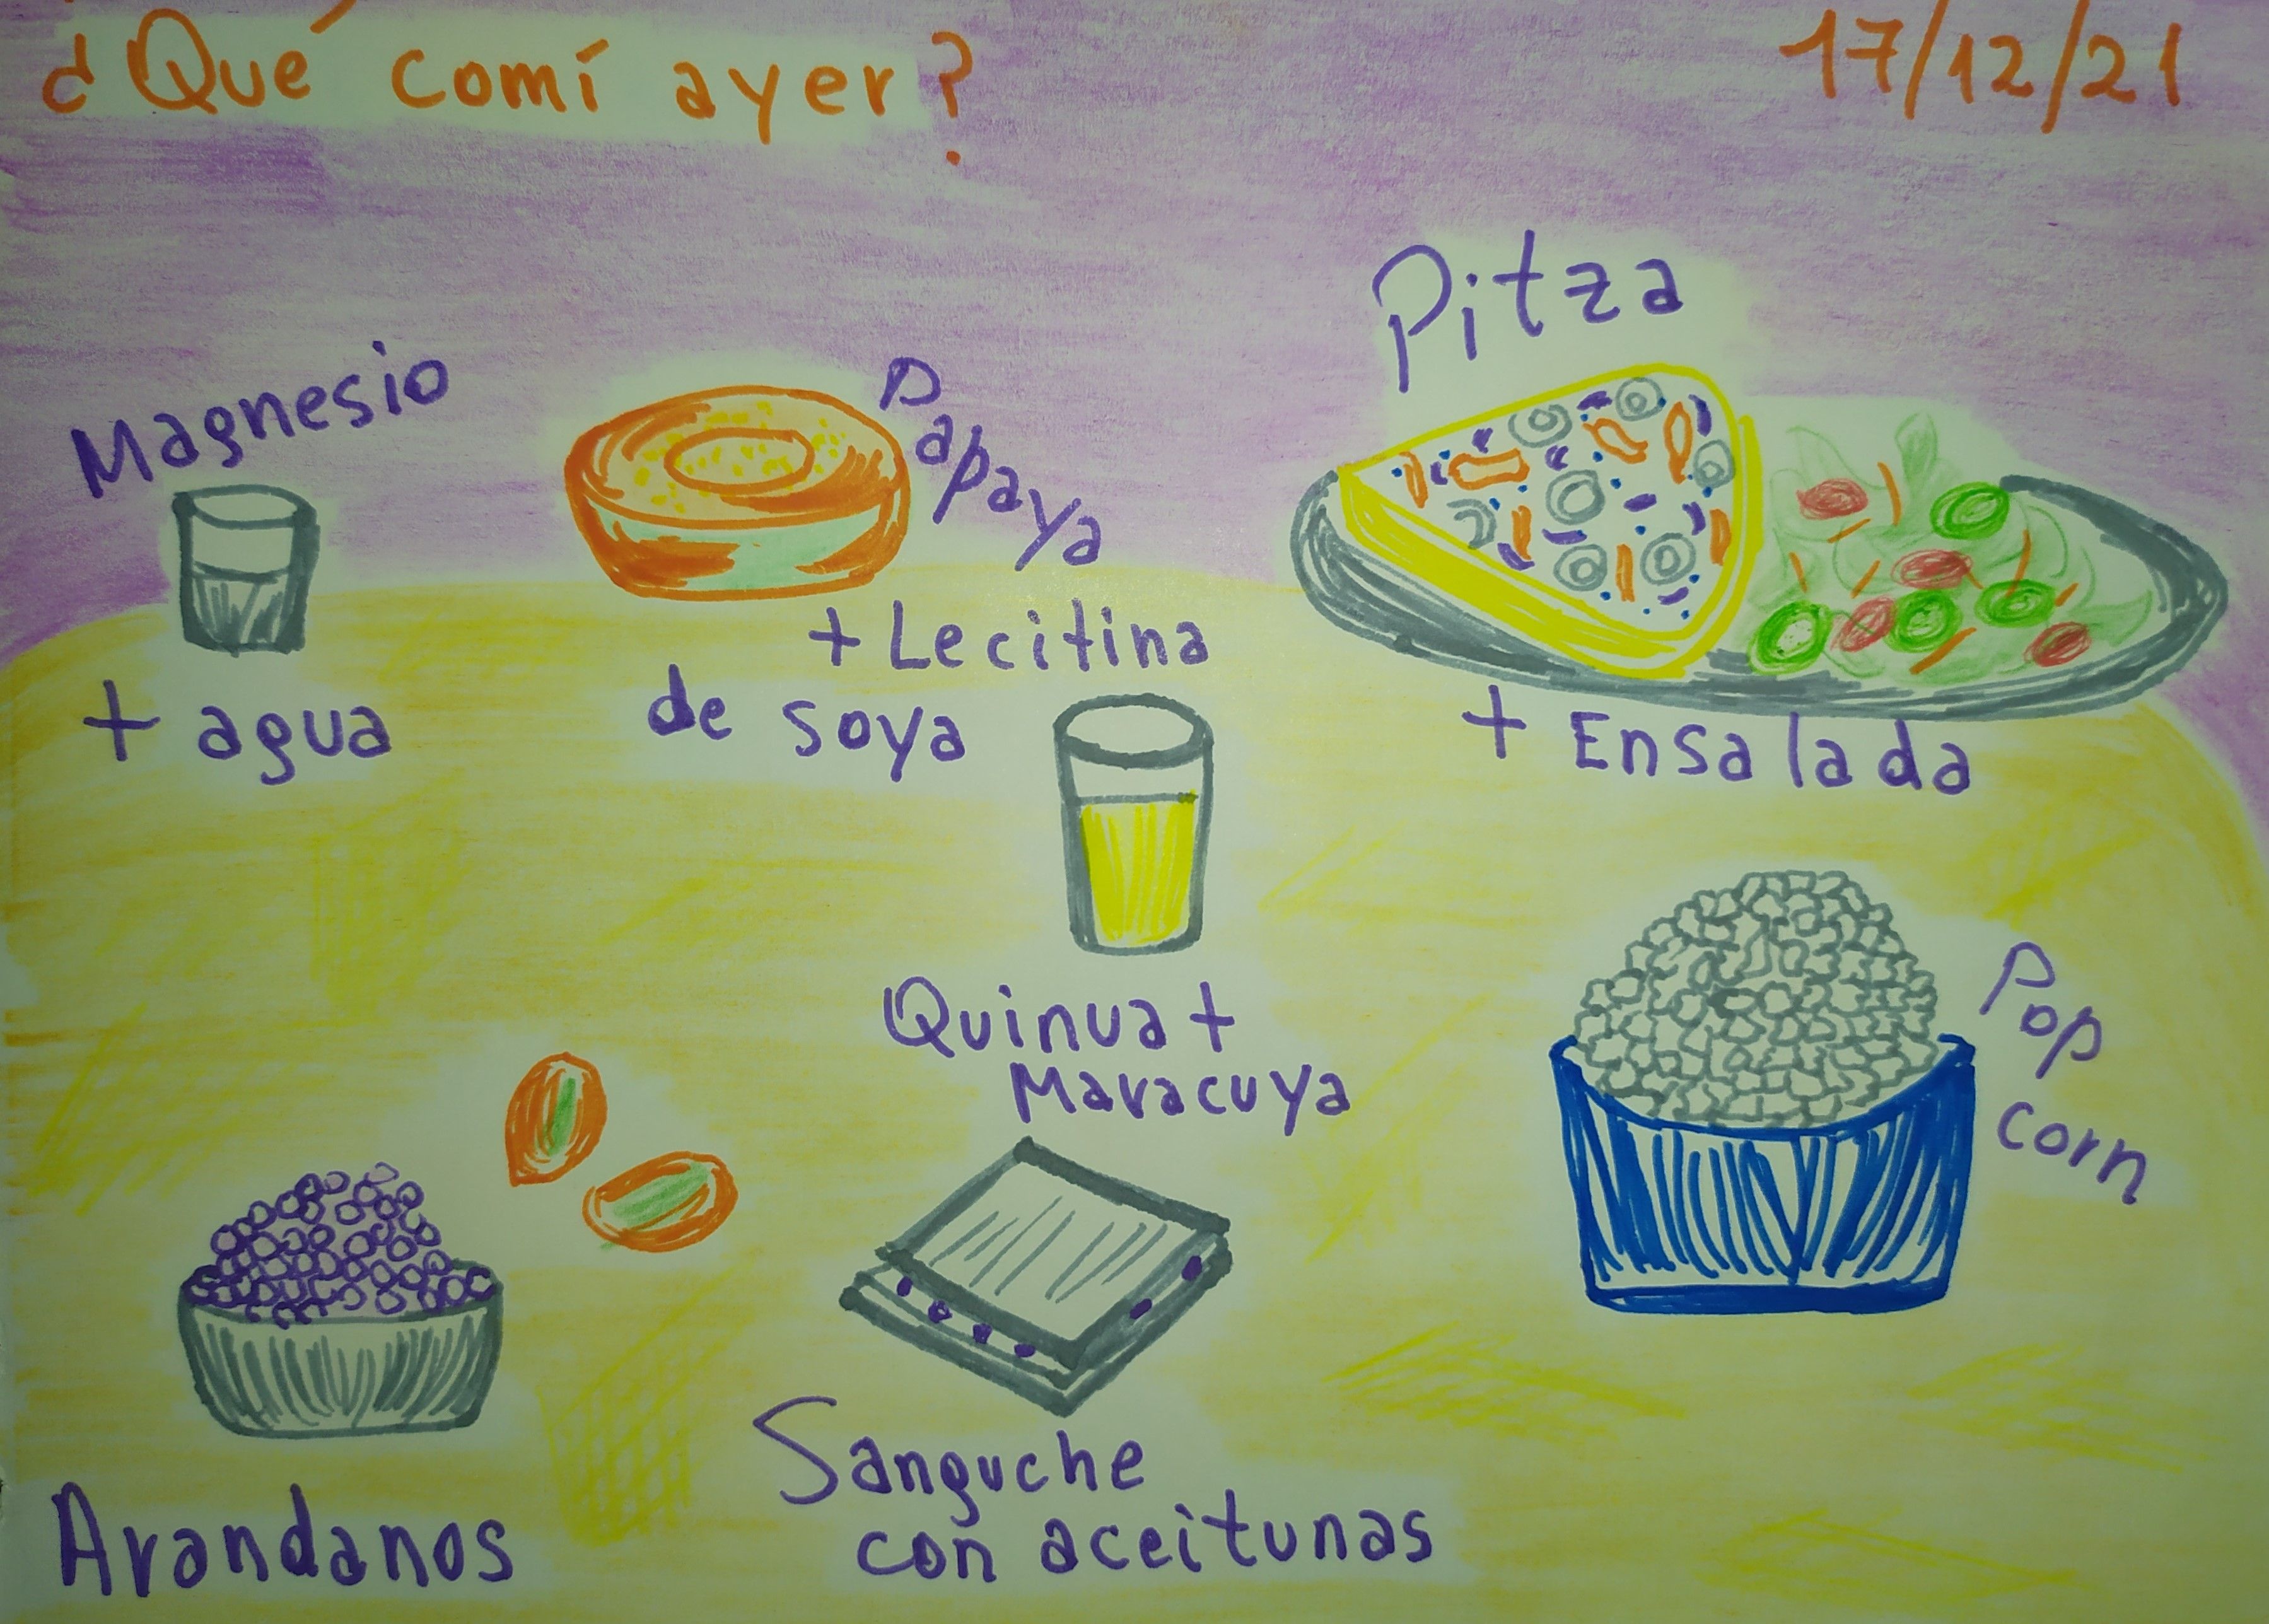 ¿Qué comí ayer?
17/12/21
Magnesio
+ agua
Papaya
+ Lecitina
de soya
Pitza
+ Ensalada
Quinua +
Maracuya
Pop
corn
Arandanos
Sanguche
con aceitunas